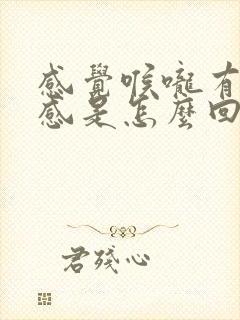 感覺喉嚨有
感是怎麼回
君殘心